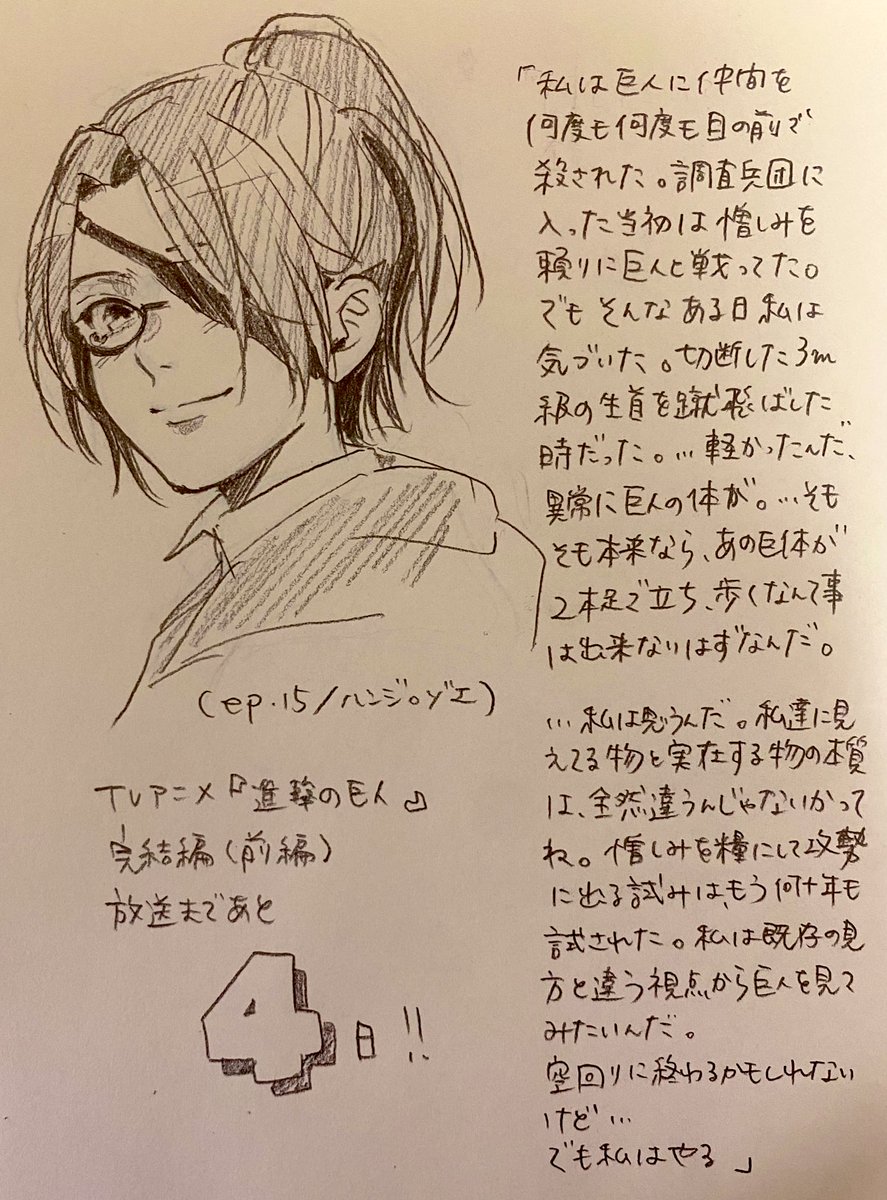 「私は巨人に仲間を
何度も何度も目の前で
殺された。調査兵団に
入った当初は憎しみを
頼りに巨人と戦ってた。
でも そんな ある日 私は
気づいた。切断した3m
級の生首を蹴り飛ばした
時だった。…軽かったんだ、
異常に巨人の体が。…そも
そも本来なら、あの巨体が
2本足で立ち、歩くなんて事
は出来ないはずなんだ。
…私は思うんだ。私達に見
えてる物と実在する物の本質
は、全然違うんじゃないかって
ね。憎しみを糧にして攻勢
に出る試みは、もう何十年も
試された。私は既存の見
方と違う視点から巨人を見て
みたいんだ。
空回りに終わるかもしれない
けど…
でも私はやる」
(ep.15/ハンジ・ゾエ)
TVアニメ『進撃の巨人』
完結編(前編)
放送まであと
4日!!